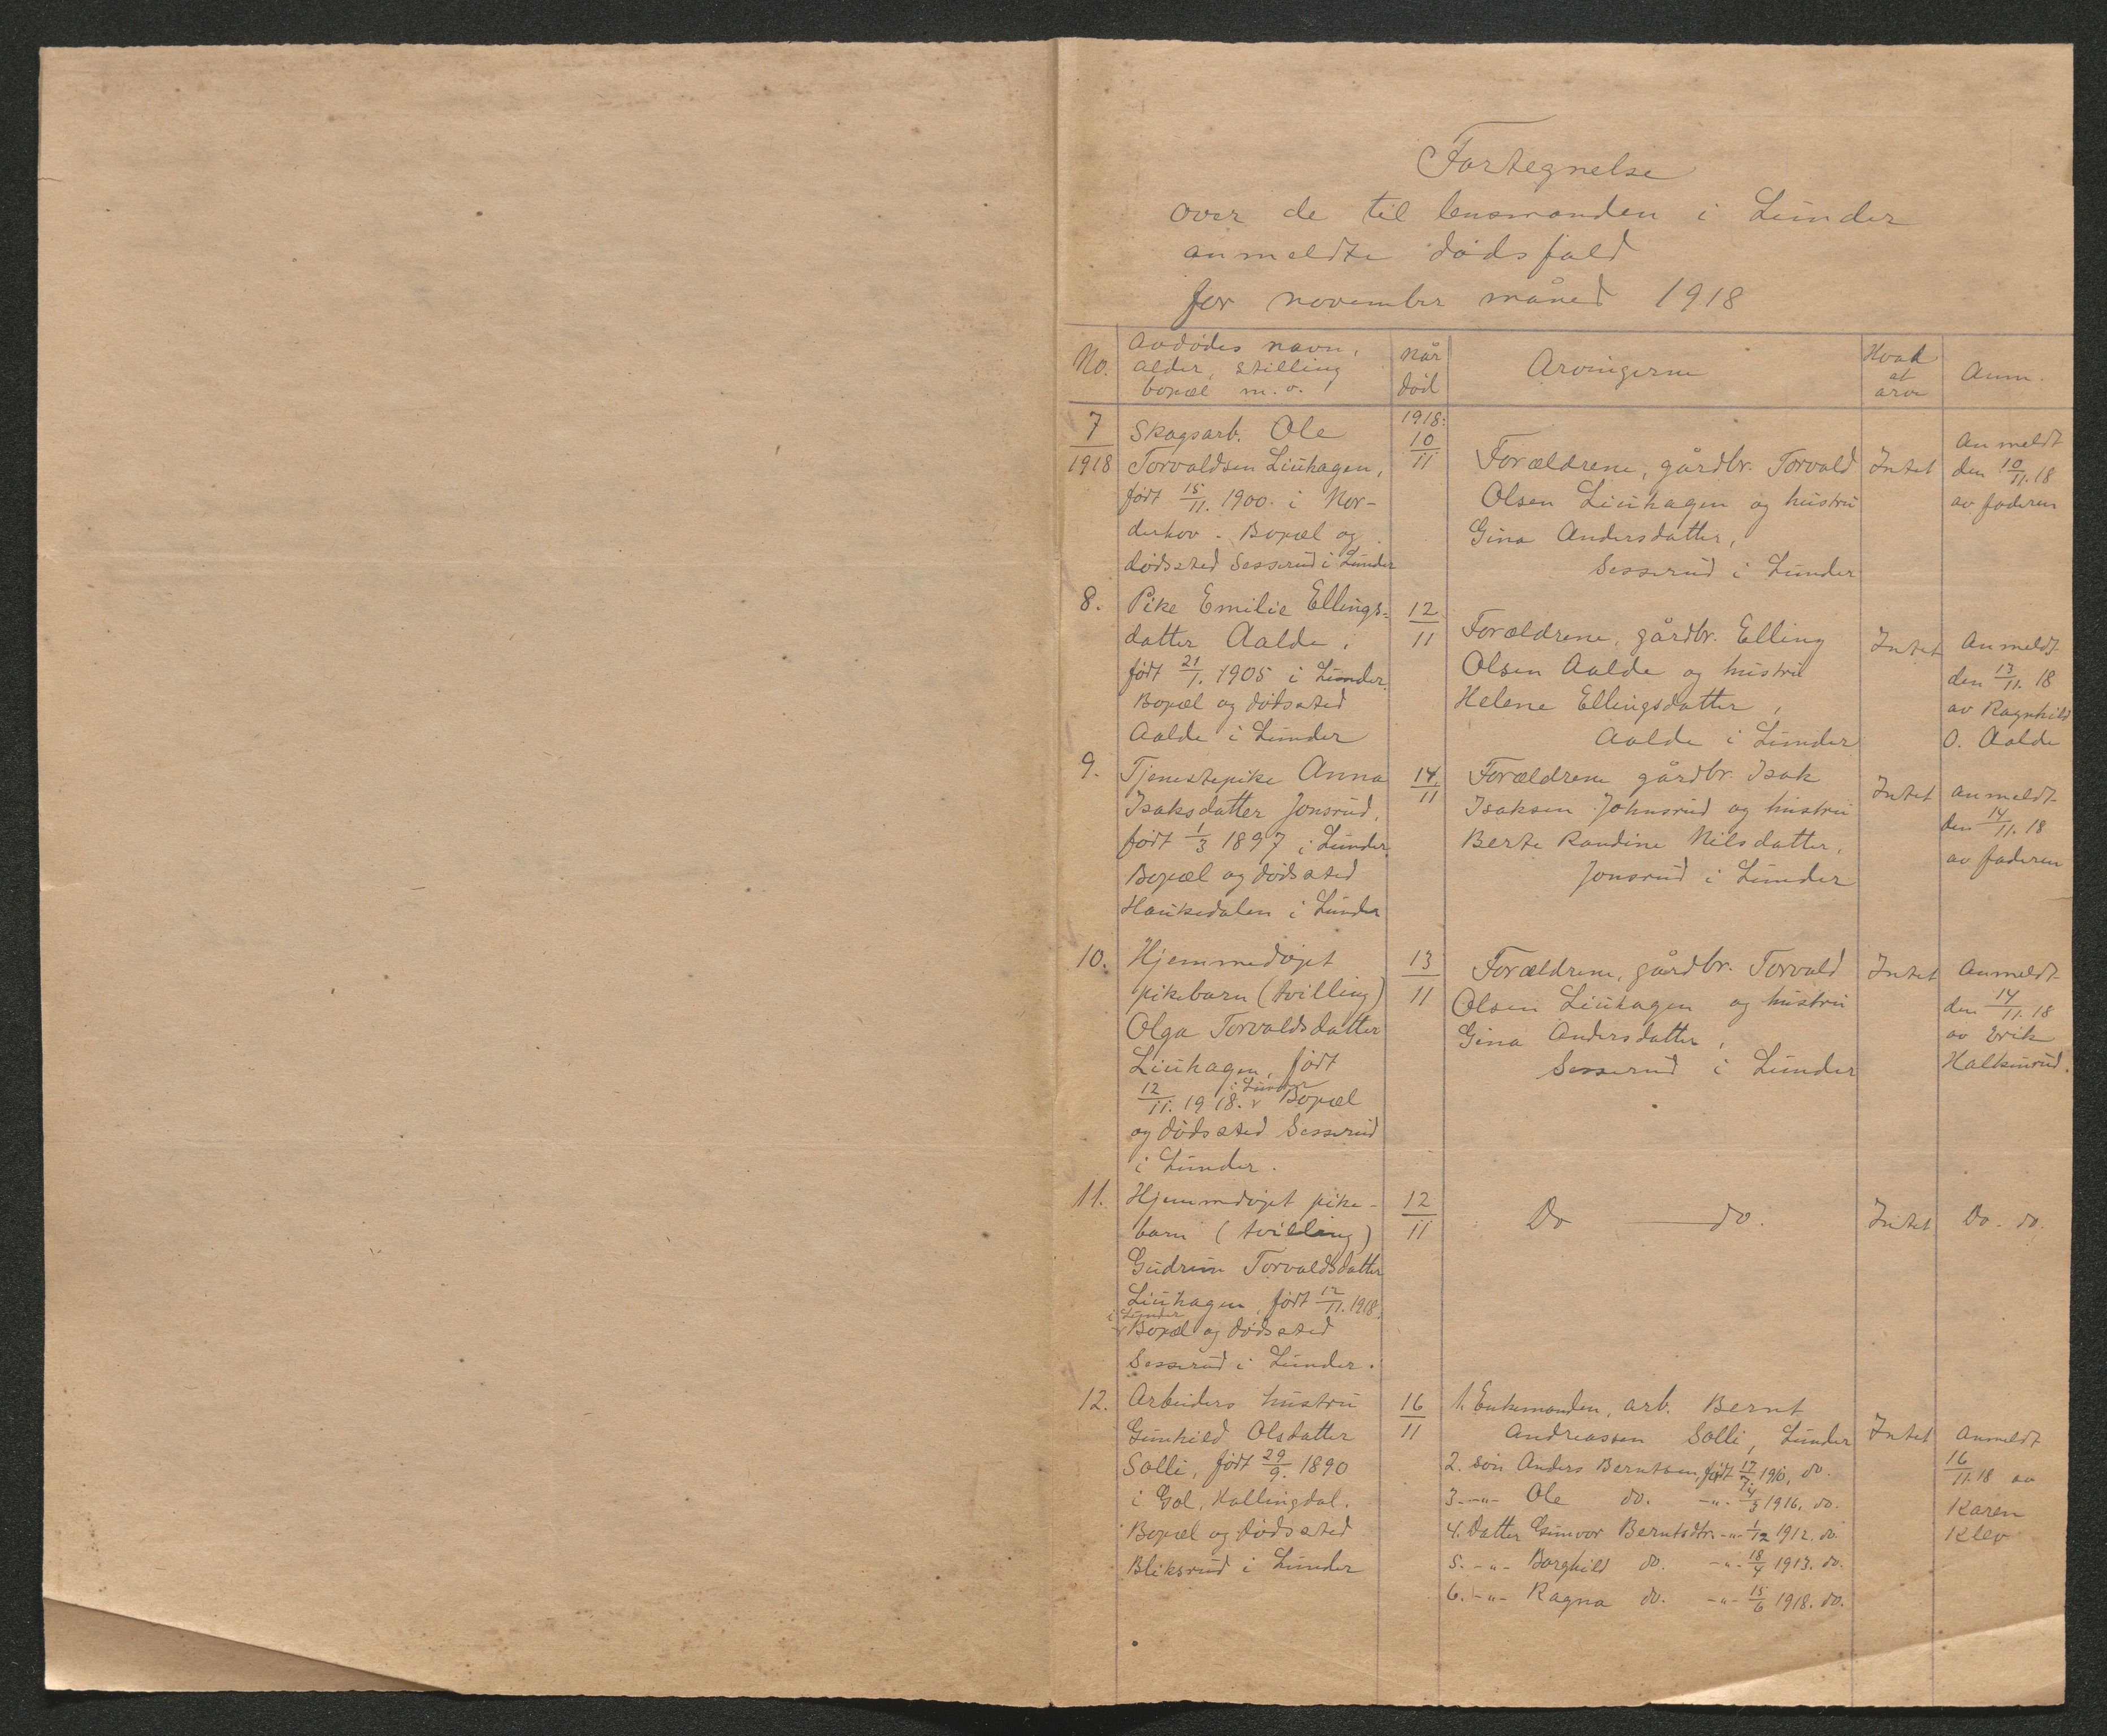 Fortegnelse
over de til lensmanden i Lunder
anmeldte dødsfald
for november måned 1918
No.
Avdødes navn,
alder, stilling
bopæl m. v.
Når
død
Arvingerne
at
arve
Anm.
7
1918
Skogsarb. Ole
Torvaldsen Liuhagen,
født 15/11. 1900. i Nor-
derhov. Bopæl og
dødssted Sesserud i Lunder
1918:
10/11
Forældrene, gårdbr. Torvald
Olsen Liuhagen og hustru
Gina Andersdatter,
Sesserud i Lunder
Intet
Anmeldt
den 10/11.18
av faderen
8.
Pike Emilie Ellings-
datter Aalde,
født 21/1. 1905 i Lunder.
Bopæl og dødssted
Aalde i Lunder
12/11
Forældrene, gårdbr. Elling
Olsen Aalde og hustru
Helene Ellingsdatter,
Aalde i Lunder
Intet
Anmeldt
den 13/11. 18
av Ragnhild
O. Aalde
9.
Tjenestepike Anna
Isaksdatter Jonsrud,
født 1/3 1897 i Lunder.
Bopæl og dødssted
Haukedalen i Lunder
14/11
Forældrene gårdbr. Isak
Isaksen Johnsrud og hustru
Berte Randine Nilsdatter,
Jonsrud i Lunder
Intet
Anmeldt
den 14/11. 18
av faderen
10.
Hjemmedøpt
pikebarn (tvilling)
Olga Torvaldsdatter
Liuhagen, født
i Lunder
12/11. 1918. v Bopæl
og dødssted Sesserud
i Lunder.
13/11
Forældrene, gårdbr. Torvald
Olsen Liuhagen og hustru
Gina Andersdatter,
Sesserud i Lunder
Intet
Anmeldt
den 14/11.18
av Erik
11.
Hjemmedøpt pike-
barn (tvilling)
Gudrun Torvaldsdatter
Liuhagen, født 12/11. 1918.
i Lunder
v Bopæl og dødssted
Sesserud i Lunder.
12/11
Do — do.
Intet
Do. do.
12.
Arbeiders hustru
Gunhild Olsdatter
Solli, født 29/9. 1890
i Gol, Hallingdal.
Bopæl og dødssted
Bliksrud i Lunder
16/11
1. Enkemanden, arb. Bernt
Andreassen Solli, Lunder
2. søn Anders Berntsen, født 17/7. 1910, do.
3. -"- Ole do. -"- 4/3 1916. do.
4. Datter Gunvor Berntsdtr. -"- 1/12 1912. do.
5. -"- Borghild do. -"- 18/4 1913. do.
6. -"- Ragna do. -"- 15/6 1918. do.
Intet
Anmeldt
16/11.18 av
Karen
Klev